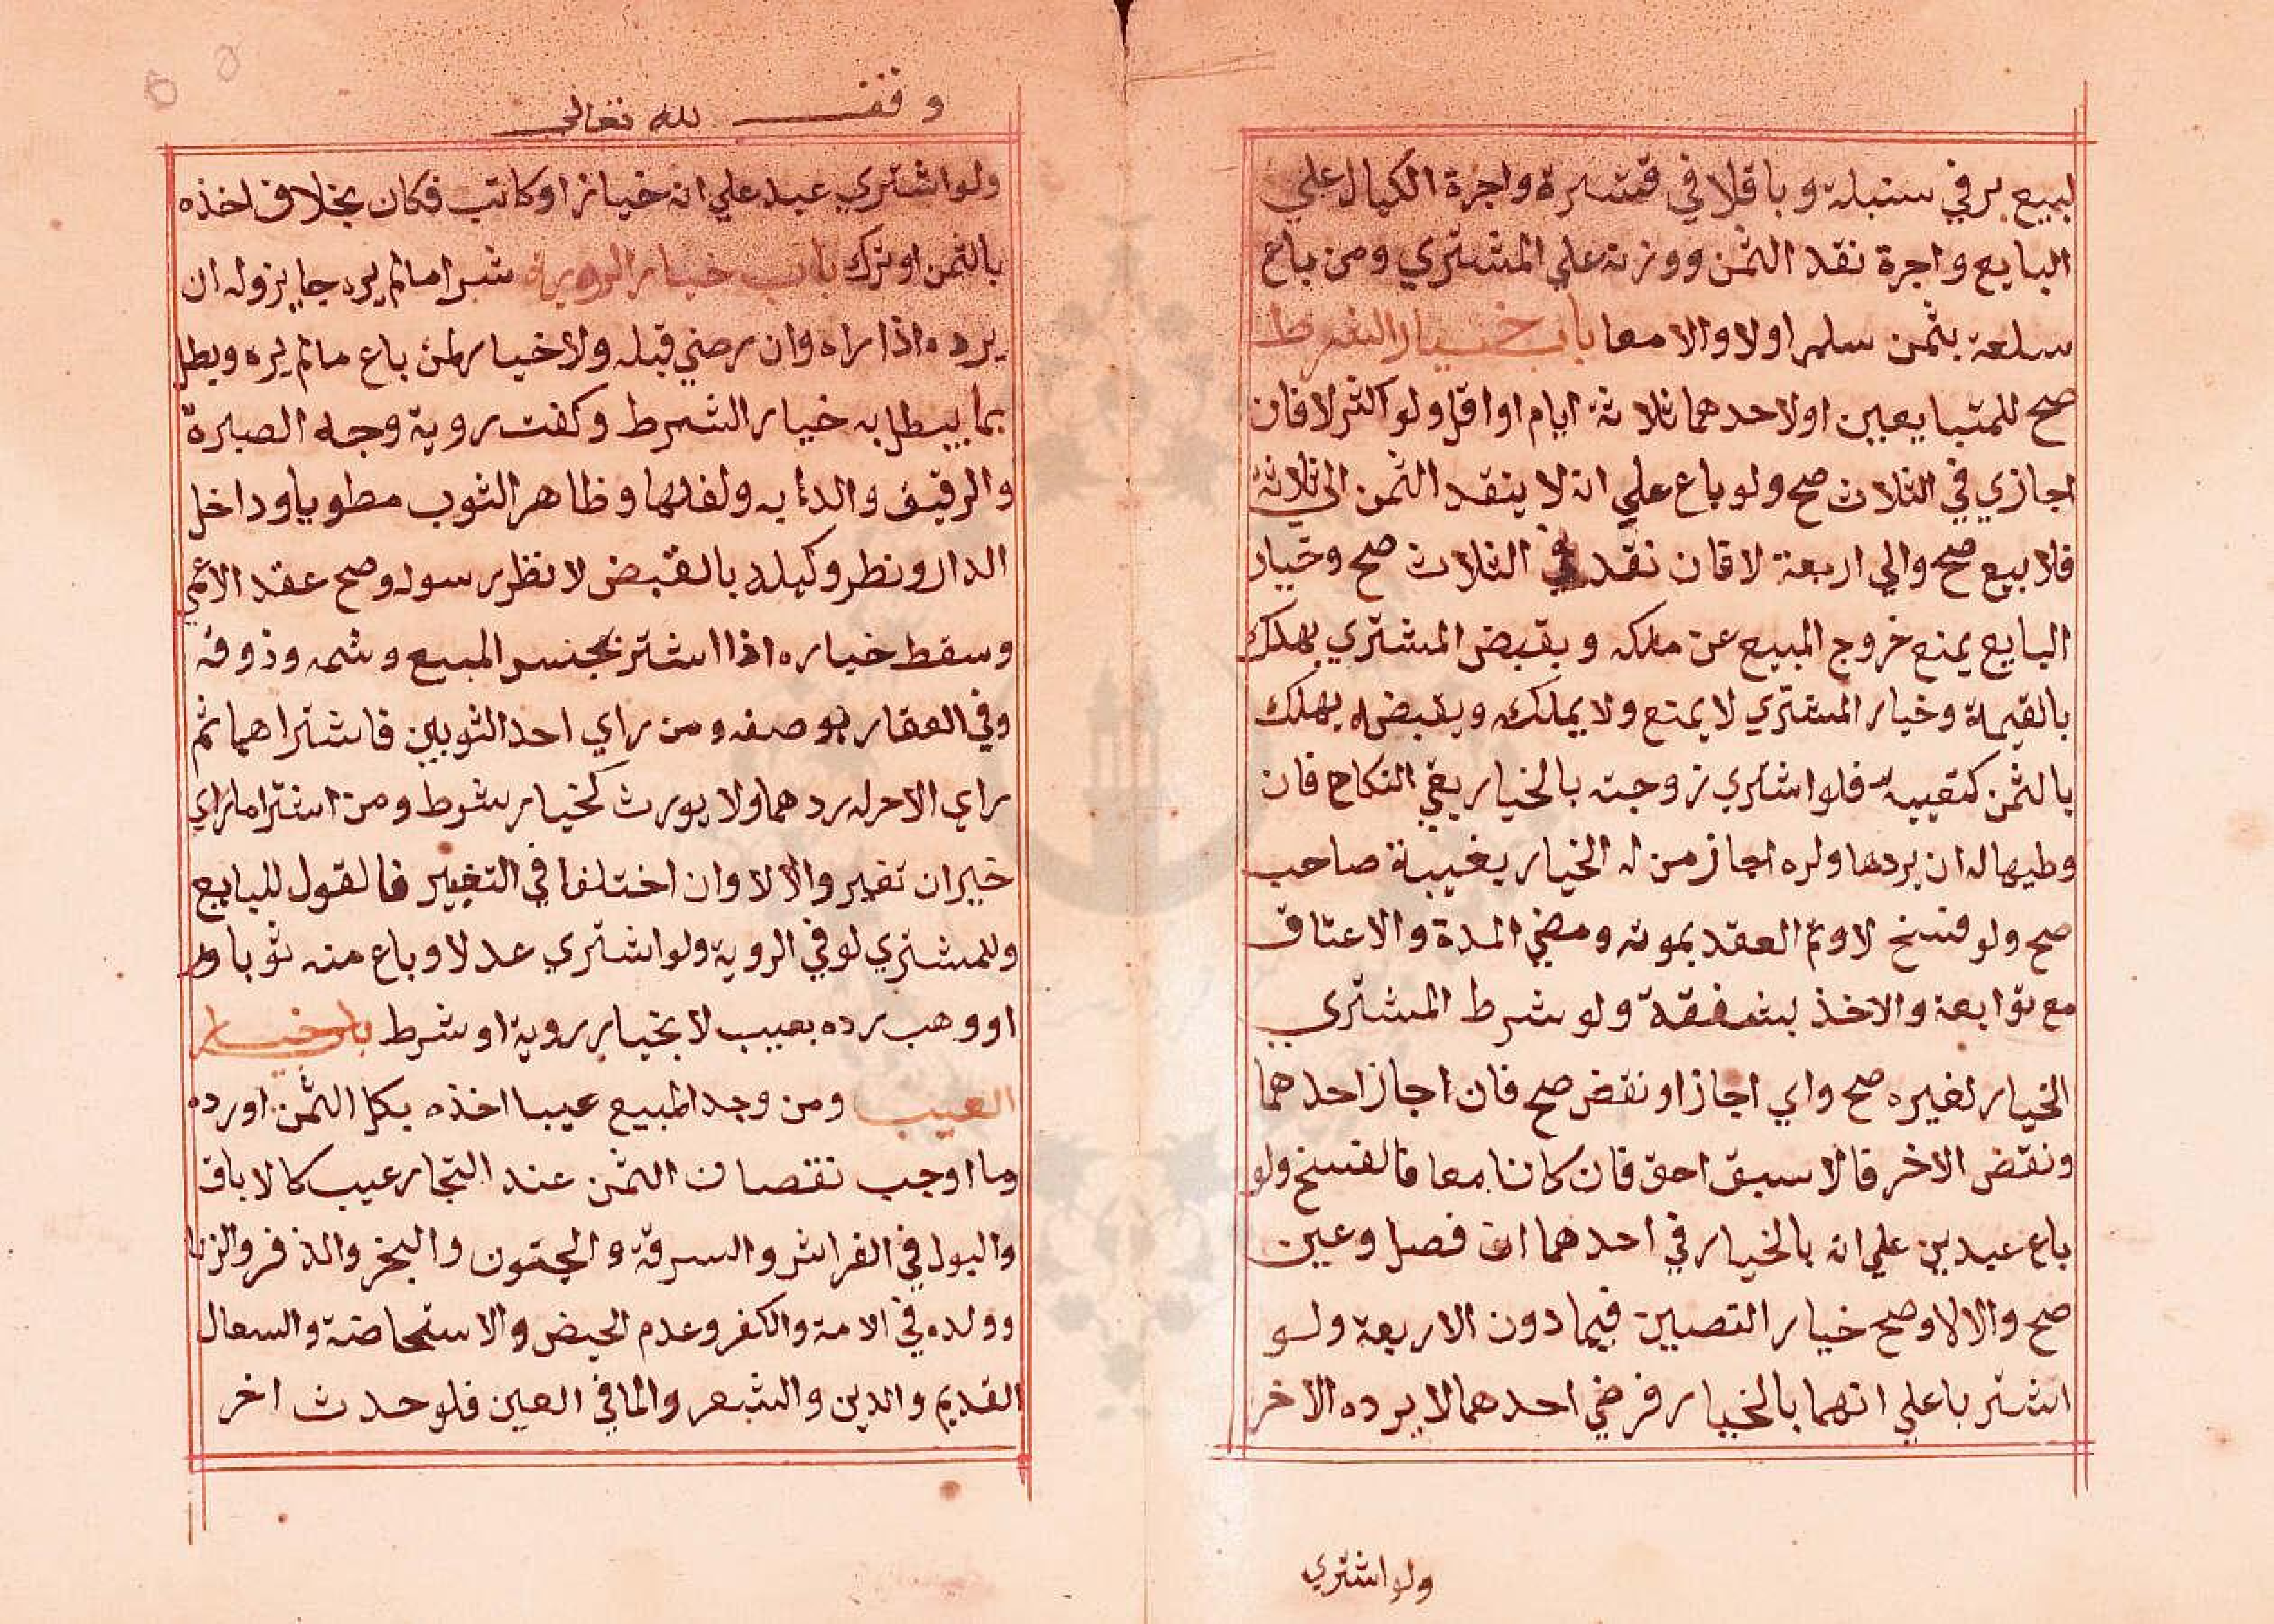 لبيع بر في سنبله وباقلا في قشرة واجرة الكيال علي
البايع واجرة نقد الثمن ووزنه علي المشتري ومن باع
سلعة بثمن سلمر اولا والا معا باب خيار الشرط
صح للمتبايعين اولاحدهما ثلاثة ايام او اقل ولو اكثر لا فان
اجازي في الثلاث صح ولو باع علي انه لا ينقد الثمن الي ثلاثة
فلا بيع صح والي اربعة لا فان نقد في الثلاث صح وخيار
البايع يمنع خروج المبيع عن ملكه وبقبض المشتري يهلك
بالقيمة وخيار المشتري لا يمنع ولا يملكه وبقبضه يهلك
بالثمن كتعيبه فلو اشتري زوجته بالخيار بقي النكاح فان
وطيها له ان يردها ولره اجاز من له الخيار بغيبة صاحب
صح ولو فسخ لا وتم العقد بموته ومضي المدة والاعتاق
مع توابعة والاخذ بشفقة ولو شرط المشتري
الخيار لغيره صح واي اجاز او نقض صح فان اجاز احدهما
ونقض الاخر فالاسبق احق فان كانا معا فالفسخ ولو
باع عبدين علي انه بالخيار في احدهما ان فصل وعين
صح والا لا وصح خيار التصيين فيما دون الاربعة ولو
اشتر يا علي انهما بالخيار فرضي احدهما لا يرده الاخر
ولو اشتري
وقف لله تعالي
ولو اشتري عبد علي انه خباز او كاتب فكان بخلاف اخذه
بالثمن او ترك باب خيار الروية شرا ما لم يره جايز وله ان
يرده اذا راه وان رضي قبله ولا خيار لمن باع ما لم يره ويطل
بما يبطل به خيار الشرط وكفت روية وجه الصبرة
والرقيق والدابه ولفلها وظاهر الثوب مطويا وداخل
الدار ونظر وكيله بالقبض لا نظر رسوله وصح عقد الاعمي
وسقط خياره اذا اشتر بجنس المبيع وشمه وذوقه
وفي العقار بوصفه ومن راي احد الثوبين فاشتراهما ثم
راي الاخر له ردهما ولا يورث كخيار شرط ومن اشترا ما راي
خير ان تغير والا لا وان اختلفا في التغيير فالقول للبايع
وللمشتري لو في الروية ولو اشتري عدلا وباع منه ثوبا وه
او وهب رده بعيب لا بخيار روية او شرط باب خيار
العيب ومن وجد المبيع عيبا اخذه بكل الثمن او رده
وما اوجب نقصان الثمن عند التجار عيب كالاباق
والبول في الفراش والسرقة والجنون والبخر والذفر والزنا
وولده في الامة والكفر وعدم الحيض والاستحاضة والسعال
القديم والدين والشعر والما في العين فلو حدث اخر